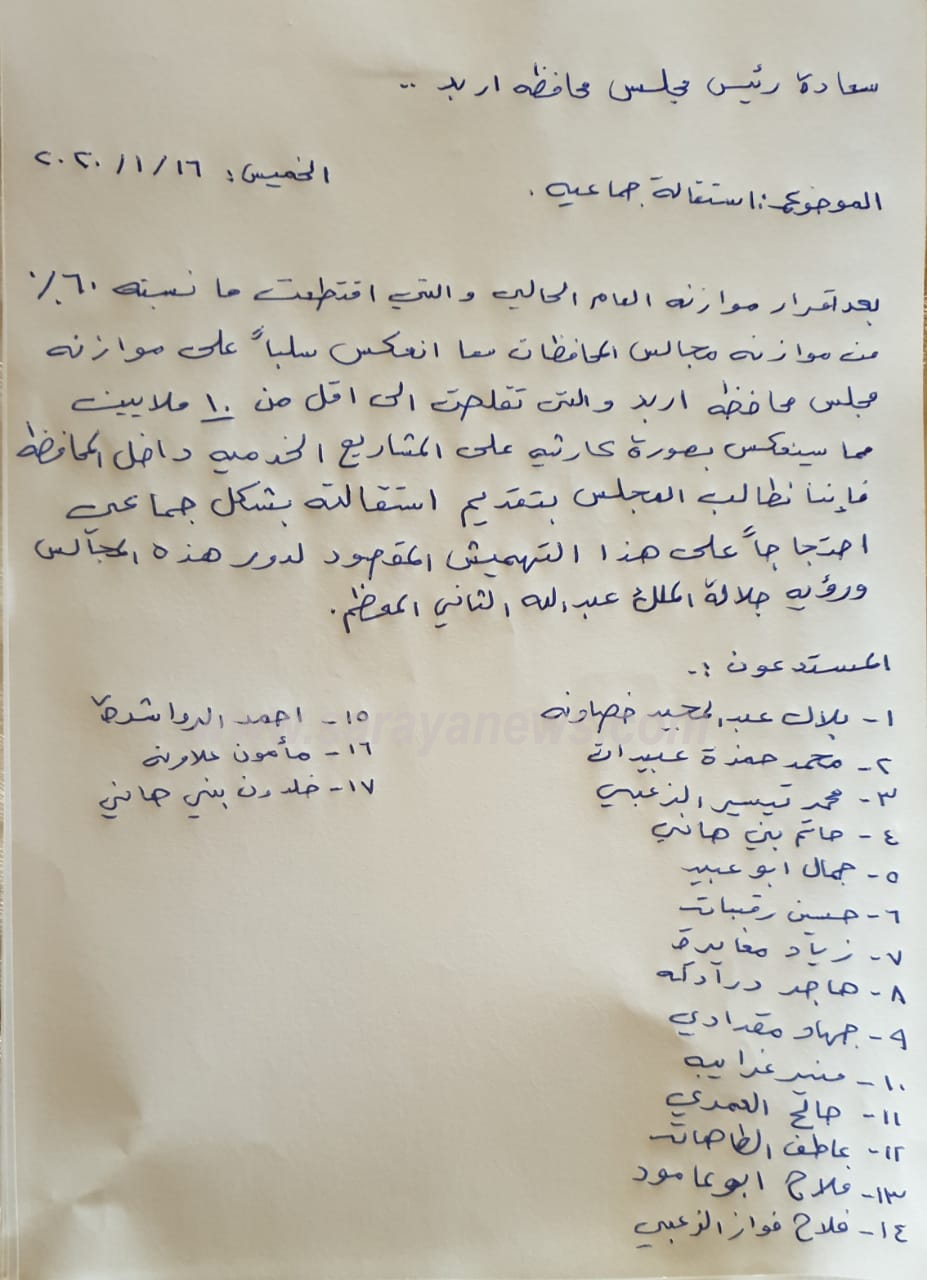 سعادة رئيس مجلس محافظه اربد ..
الخميس: ١٦ / ١ / ٢٠٢٠
الموضوع: استقالة جماعيه .
بعد اقرار موازنه العام الحالي والتي اقتطعت ما نسبته ٦٠٪
من موازنه مجالس المحافظات مما انعكس سلباً على موازنه
مجلس محافظه اربد والتي تقلصت الى اقل من ١٠ ملايين
مما سينعكس بصورة كارثيه على المشاريع الخدميه داخل المحافظه
فإننا نطالب المجلس بتقديم استقالته بشكل جماعي
احتجاجاً على هذا التهميش المقصود لدور هذه المجالس
ورؤيه جلالة الملك عبدالله الثاني المعظم.
المستدعون :-
١- بلال عبدالمجيد خصاونه
٢- محمد حمزة عبيدات
٣- محمد تيسير الزعبي
٤- حاتم بني هاني
٥- جمال ابو عبيد
٦- حسين رقيبات
٧- زياد مغايرة
٨- هاجر درادكه
٩- جهاد مقدادي
١٠- منير غرايبه
١١- صالح العمري
١٢- عاطف الطاهات
١٣- فلاح ابو عامود
١٤- فلاح فواز الزعبي
١٥- احمد الرواشدة
١٦- مأمون علاونه
١٧- خلدون بني هاني
www.sarayanews.com